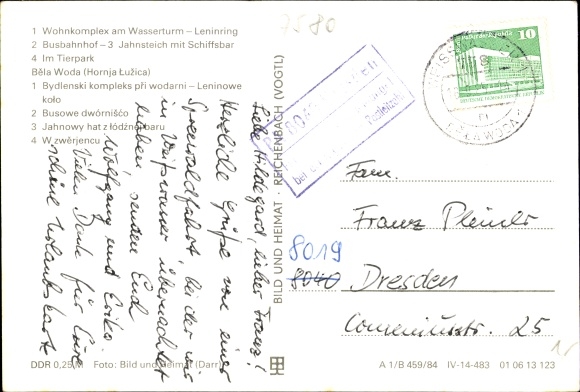 7580
1 Wohnkomplex am Wasserturm – Leninring
2 Busbahnhof – 3 Jahnsteich mit Schiffsbar
4 Im Tierpark
Běla Woda (Hornja Łužica)
1 Bydlenski kompleks při wodarni – Leninowe
koło
2 Busowe dwórnišćo
3 Jahnowy hat z łódźnej baru
4 W zwěrjencu
Liebe Hildegard, lieber Franz!
Herzliche Grüße von einer
Spreewaldfahrt, bei der wir
in Weißwasser übernachtet
haben, senden Euch
Wolfgang und Erika
Vielen Dank für Eure
schöne Urlaubskarte
DDR 0,25 M Foto: Bild und Heimat (Darr)
BILD UND HEIMAT · REICHENBACH (VOGTL)
10
DEUTSCHE DEMOKRATISCHE REPUBLIK
BĚŁA WODA
Fam.
Franz
8019
8040 Dresden
Comeniusstr. 25
A 1/B 459/84 IV-14-483 01 06 13 123